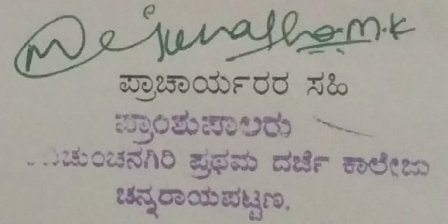 ಪ್ರಾಚಾರ್ಯರರ ಸಹಿ
ಪ್ರಾಂಶುಪಾಲರು
ಚುಂಚನಗಿರಿ ಪ್ರಥಮ ದರ್ಜೆ ಕಾಲೇಜು
ಚನ್ನರಾಯಪಟ್ಟಣ.